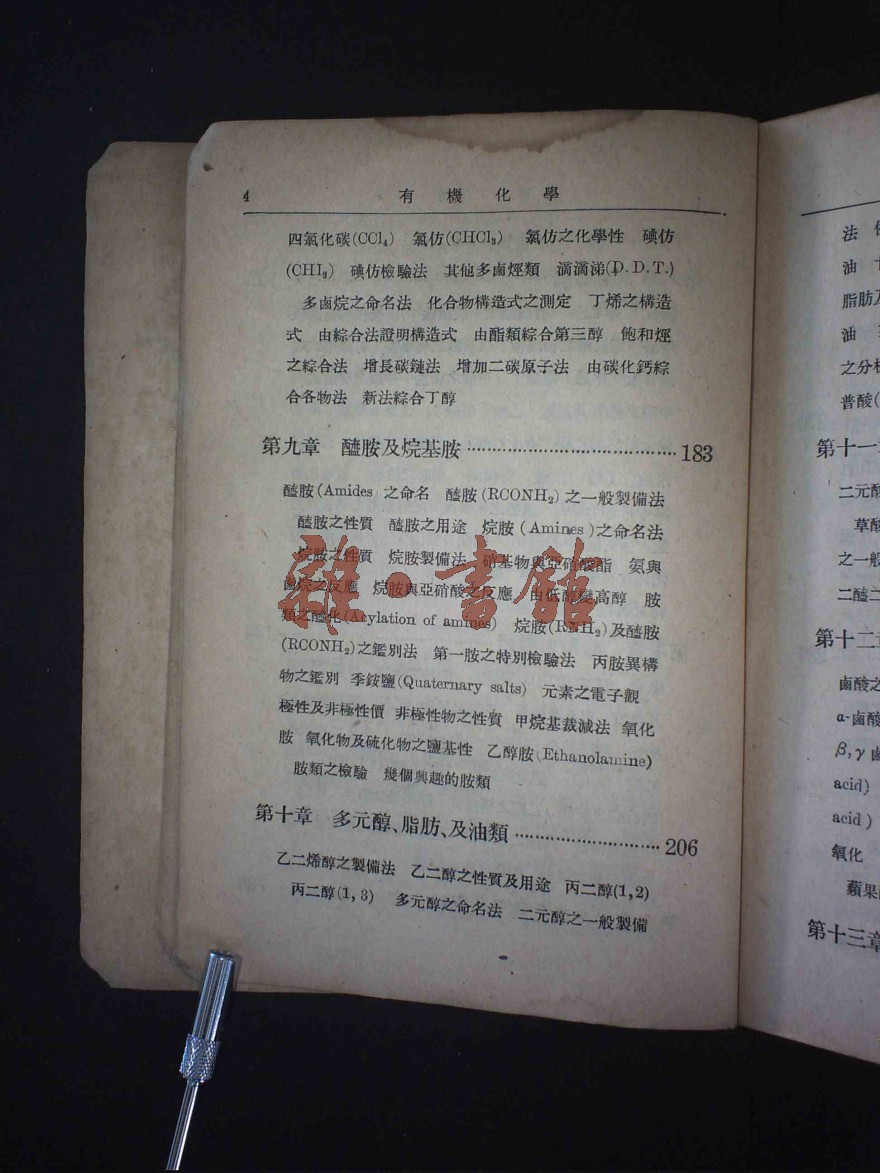 4 有機化學
四氯化碳(CCl₄) 氯仿(CHCl₃) 氯仿之化學性 碘仿
(CHI₃) 碘仿檢驗法 其他多鹵烴類 滴滴涕(D.D.T.)
多鹵烷之命名法 化合物構造式之測定 丁烯之構造
式 由綜合法證明構造式 由酯類綜合第三醇 飽和烴
之綜合法 增長碳鏈法 增加二碳原子法 由碳化鈣綜
合各物法 新法綜合丁醇
第九章 醯胺及烷基胺 183
醯胺(Amides) 之命名 醯胺(RCONH₂)之一般製備法
醯胺之性質 醯胺之用途 烷胺(Amines)之命名法
烷胺之性質 烷胺製備法 硝基物與亞硝酸酯 氨與
鹵烷之反應 烷胺與亞硝酸之反應 由低醇變高醇 胺
類之醯化(Acylation of amines) 烷胺(RNH₂)及醯胺
(RCONH₂)之鑑別法 第一胺之特別檢驗法 丙胺異構
物之鑑別 季銨鹽(Quaternary salts) 元素之電子觀
極性及非極性價 非極性物之性質 甲烷基裁減法 氧化
胺 氧化物及硫化物之鹽基性 乙醇胺(Ethanolamine)
胺類之檢驗 幾個興趣的胺類
第十章 多元醇、脂肪、及油類 206
乙二烯醇之製備法 乙二醇之性質及用途 丙二醇(1,2)
丙二醇(1,3) 多元醇之命名法 二元醇之一般製備
雜·書館
法
油
脂肪及
油
之分析
普酸(
第十一章
二元醇
草酸
之一般
二醯二
第十二章
鹵酸之
α-鹵酸
β,γ 鹵
acid)
acid)
氧化
蘋果
第十三章